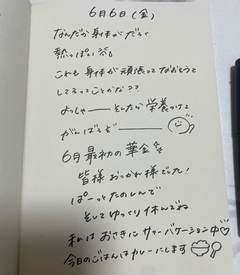 6月6日(金)
なんだか身体がだるく
熱っぽい
これも身体が頑張ってなおそうと
してるってことかな??
よっしゃーそしたら栄養つけて
がんばるぞー
6月最初の華金
皆様おつかれ様でした!
ぱーっとたのしんで
そしてゆっくり休んでね
私はおさきにサマーバケーション中♡
今日のごはんはカレーにします